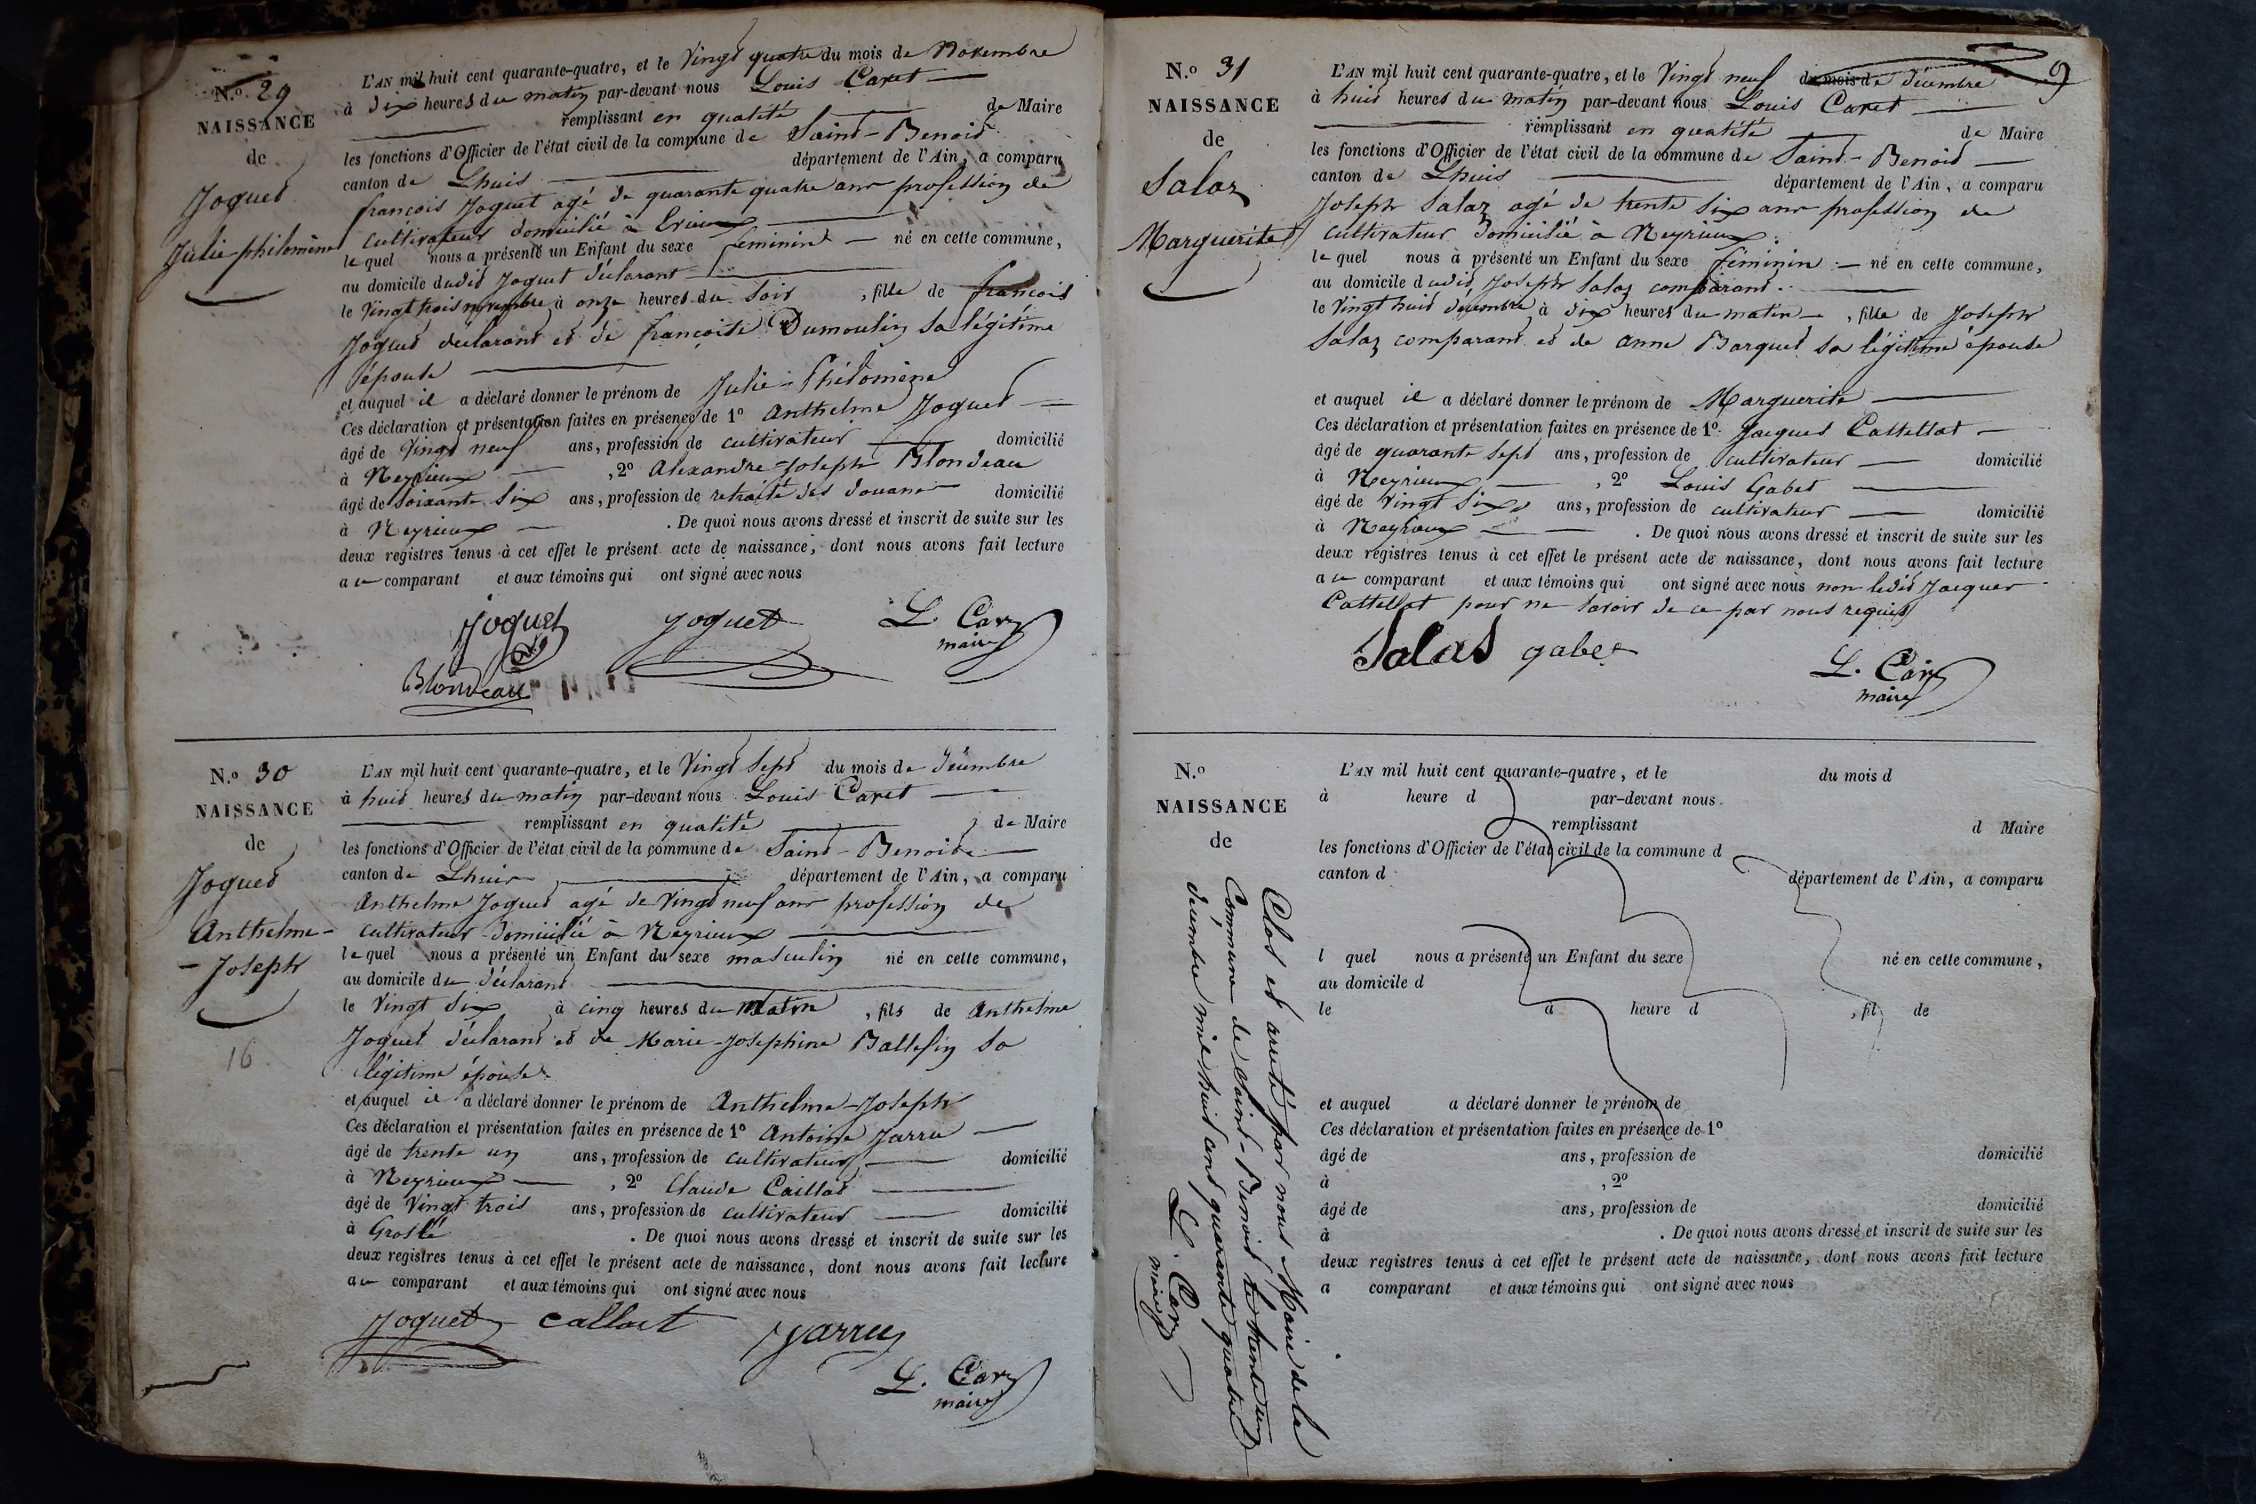 N.o 29
NAISSANCE
de
Joguet
Julie philomène
L'AN mil huit cent quarante-quatre, et le Vingt quatre du mois de Novembre
à dix heures du matin par-devant nous Louis Caret
remplissant en qualité de Maire
les fonctions d'Officier de l'état civil de la commune de Saint-Benoit
canton de Lhuis département de l'Ain, a comparu
françois Joguet agé de quarante quatre ans profession de
cultivateur domicilié à
le quel nous a présenté un Enfant du sexe feminin né en cette commune,
au domicile dudit Joguet déclarant
le Vingt trois novembre à onze heures du soir , fille de françois
Joguet déclarant et de françoise Dumoulin sa légitime
épouse
et auquel il a déclaré donner le prénom de Julie-Philomène
Ces déclaration et présentation faites en présence de 1o Anthelme Joguet
âgé de Vingt neuf ans, profession de cultivateur domicilié
à Neyrieux , 2o Alexandre-Joseph Blondeau
âgé de soixante six ans, profession de retraité des douanes domicilié
à Neyrieux . De quoi nous avons dressé et inscrit de suite sur les
deux registres tenus à cet effet le présent acte de naissance, dont nous avons fait lecture
au comparant et aux témoins qui ont signé avec nous
Joguet Joguet L. Caret
maire
Blondeau
N.o 30
NAISSANCE
de
Joguet
Anthelme-
-Joseph
16
L'AN mil huit cent quarante-quatre, et le Vingt Sept du mois de décembre
à huit heures du matin par-devant nous Louis Caret
remplissant en qualité de Maire
les fonctions d'Officier de l'état civil de la commune de Saint-Benoit
canton de Lhuis département de l'Ain, a comparu
Anthelme Joguet agé de Vingt neuf ans profession de
cultivateur domicilié à Neyrieux
le quel nous a présenté un Enfant du sexe masculin né en cette commune,
au domicile du déclarant
le Vingt six à cinq heures du matin , fils de Anthelme
Joguet déclarant et de Marie-Josephine Ballefin sa
légitime épouse
et auquel il a déclaré donner le prénom de Anthelme-Joseph
Ces déclaration et présentation faites en présence de 1o Antoine Jarru
âgé de trente un ans, profession de cultivateur domicilié
à Neyrieux , 2o Claude Caillat
âgé de Vingt trois ans, profession de cultivateur domicilié
à Groslé . De quoi nous avons dressé et inscrit de suite sur les
deux registres tenus à cet effet le présent acte de naissance, dont nous avons fait lecture
au comparant et aux témoins qui ont signé avec nous
Joguet callact Jarru
L. Caret
maire
9
N.o 31
NAISSANCE
de
Salaz
Marguerite
L'AN mil huit cent quarante-quatre, et le Vingt neuf du mois de décembre
à huit heures du matin par-devant nous Louis Caret
remplissant en qualité de Maire
les fonctions d'Officier de l'état civil de la commune de Saint-Benoit
canton de Lhuis département de l'Ain, a comparu
Joseph Salaz agé de trente six ans profession de
cultivateur domicilié à Neyrieux.
le quel nous a présenté un Enfant du sexe féminin né en cette commune,
au domicile dudit Joseph Salaz comparant.
le Vingt huit décembre à dix heures du matin , fille de Joseph
Salaz comparant et de Anne Barquet sa légitime épouse
et auquel il a déclaré donner le prénom de Marguerite
Ces déclaration et présentation faites en présence de 1o Jacques Cattellat
âgé de quarante sept ans, profession de cultivateur domicilié
à Neyrieux , 2o Louis Gabet
âgé de Vingt six ans, profession de cultivateur domicilié
à Neyrieux . De quoi nous avons dressé et inscrit de suite sur les
deux registres tenus à cet effet le présent acte de naissance, dont nous avons fait lecture
au comparant et aux témoins qui ont signé avec nous non ledit Jacques
Cattellat pour ne savoir de ce par nous requis
Salas gabet
L. Caret
maire
N.o
NAISSANCE
de
L'AN mil huit cent quarante-quatre, et le du mois d
à heure d par-devant nous
remplissant d Maire
les fonctions d'Officier de l'état civil de la commune d
canton d département de l'Ain, a comparu
l quel nous a présenté un Enfant du sexe né en cette commune,
au domicile d
le à heure d , fil de
et auquel a déclaré donner le prénom de
Ces déclaration et présentation faites en présence de 1o
âgé de ans, profession de domicilié
à , 2o
âgé de ans, profession de domicilié
à . De quoi nous avons dressé et inscrit de suite sur les
deux registres tenus à cet effet le présent acte de naissance, dont nous avons fait lecture
a comparant et aux témoins qui ont signé avec nous
Clos et arreté par nous Maire de la
Commune de Saint-Benoit le trente un
décembre mil huit cent quarante quatre
L. Caret
maire